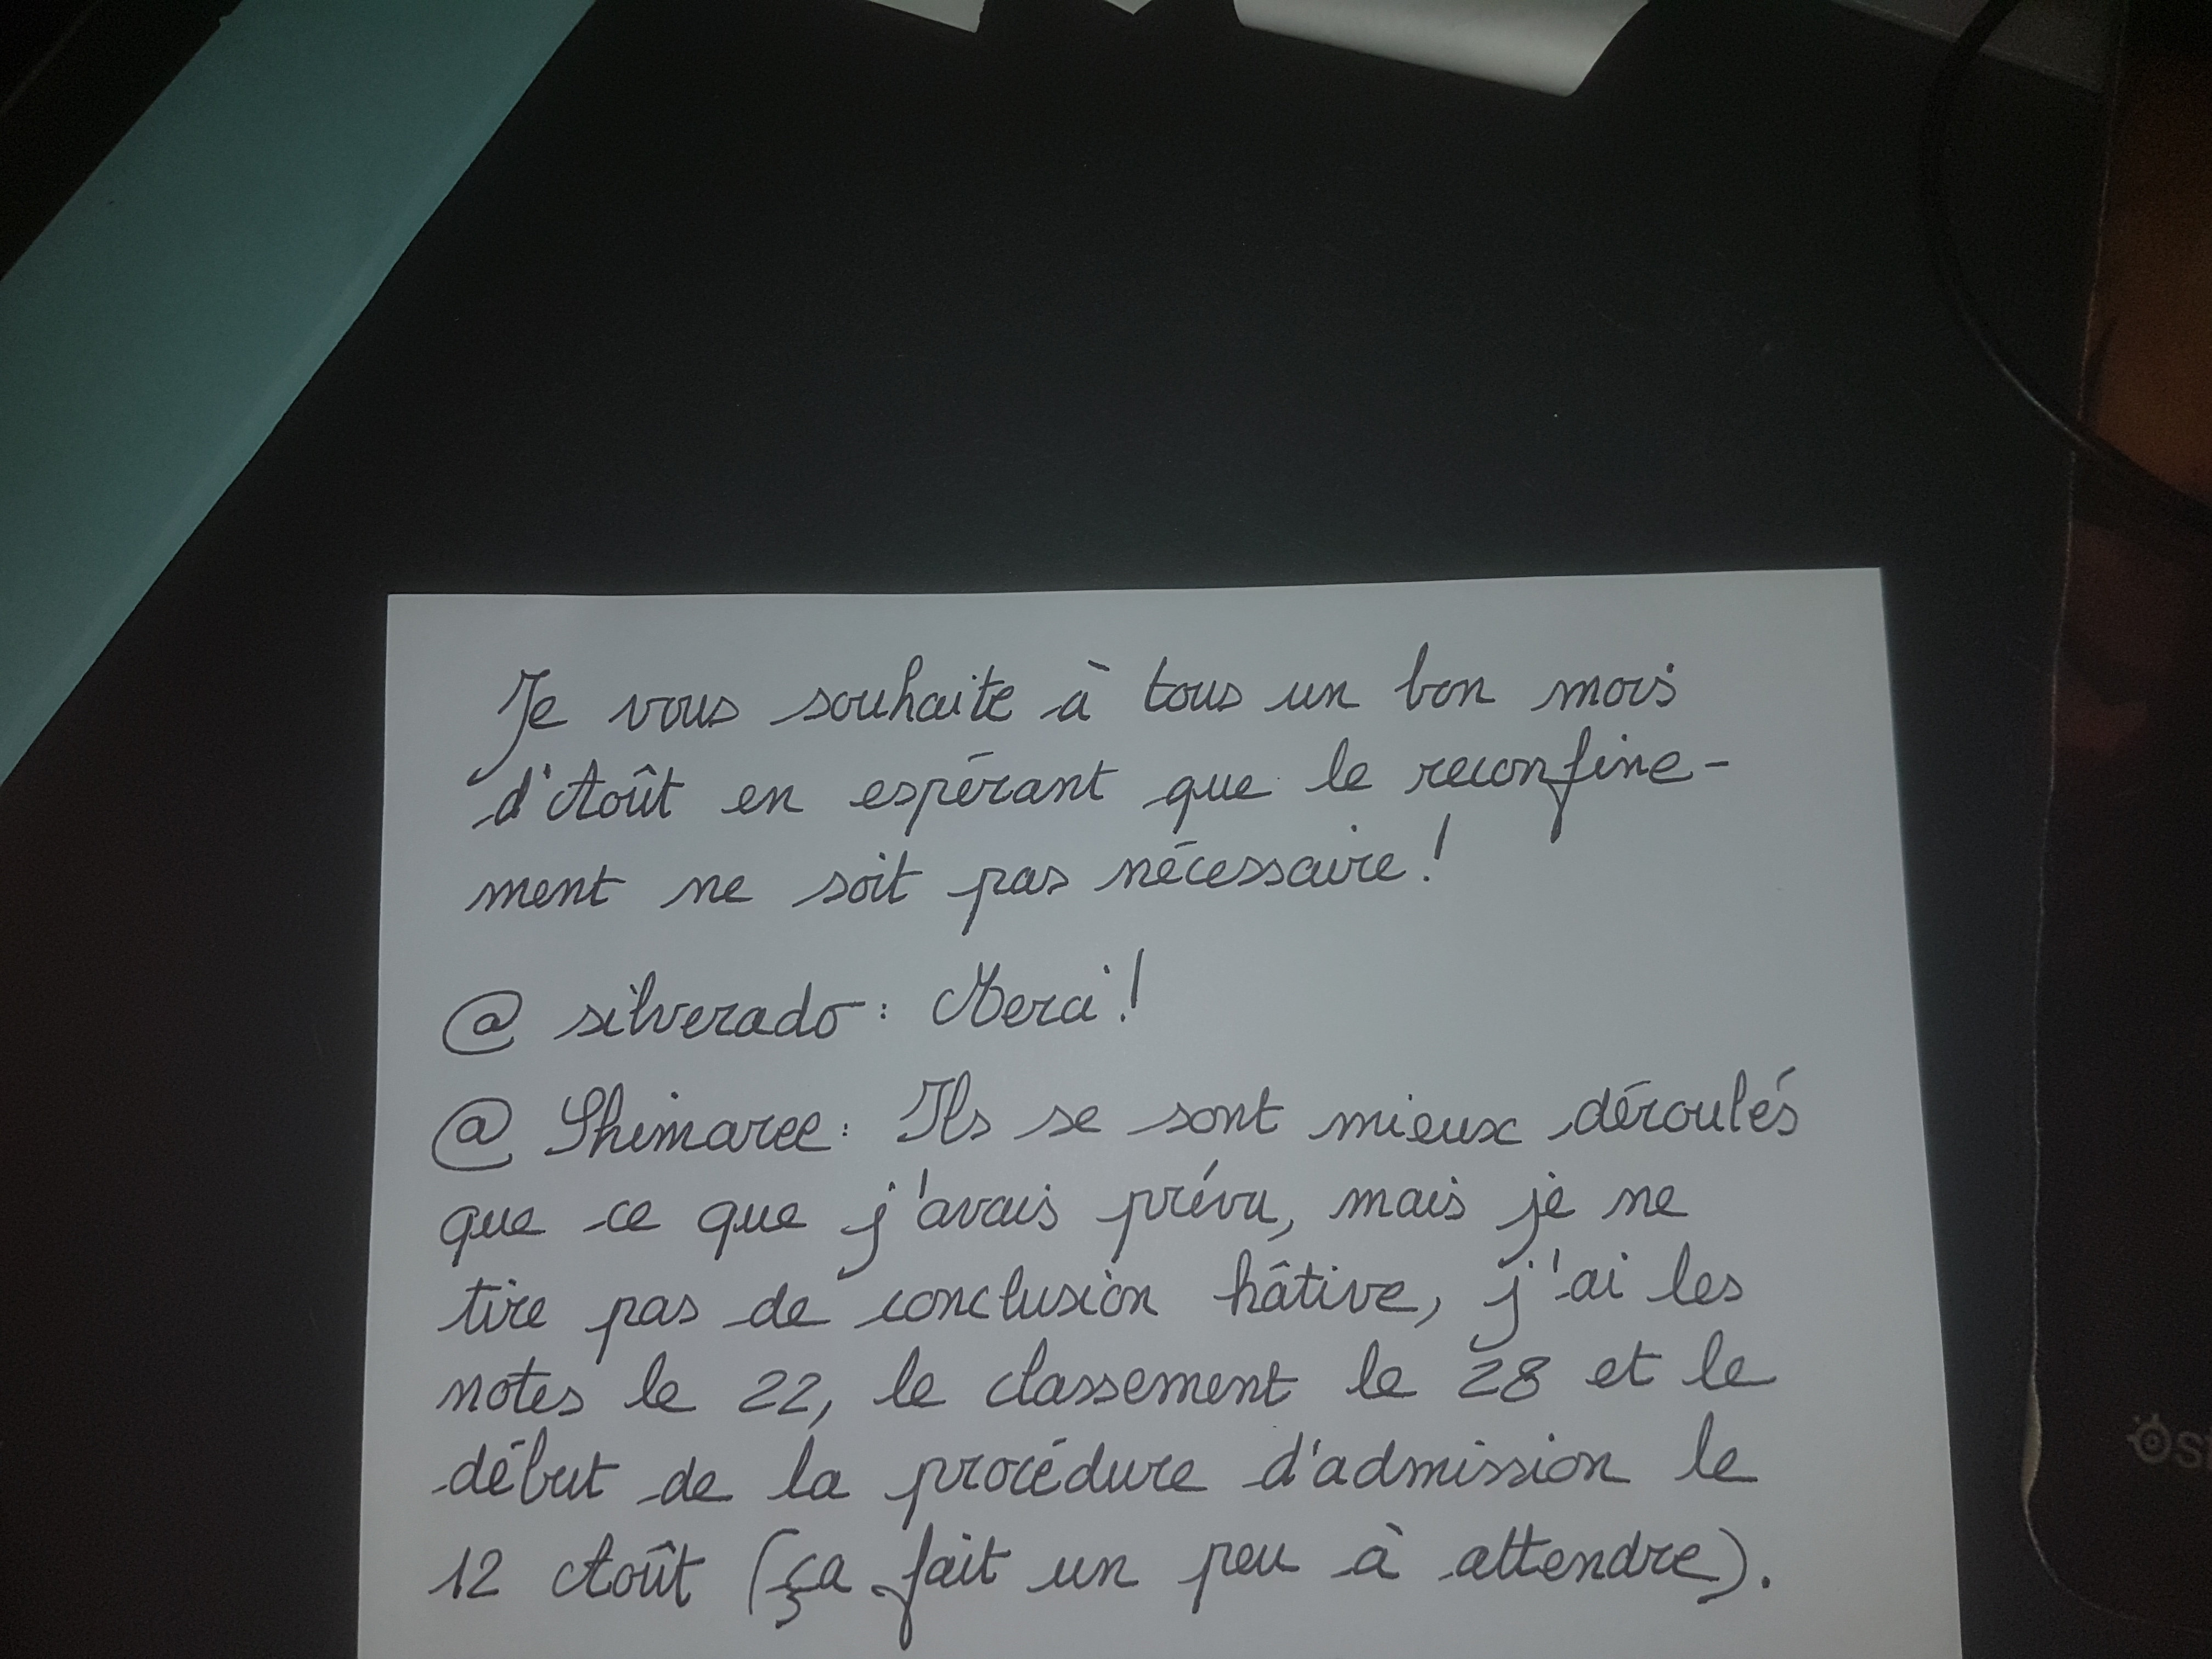 Je vous souhaite à tous un bon mois
d'Août en espérant que le reconfine-
ment ne soit pas nécessaire !
@ silverado : Merci !
@ Shimaree : Ils se sont mieux déroulés
que ce que j'avais prévu, mais je ne
tire pas de conclusion hâtive, j'ai les
notes le 22, le classement le 28 et le
début de la procédure d'admission le
12 Août (ça fait un peu à attendre).